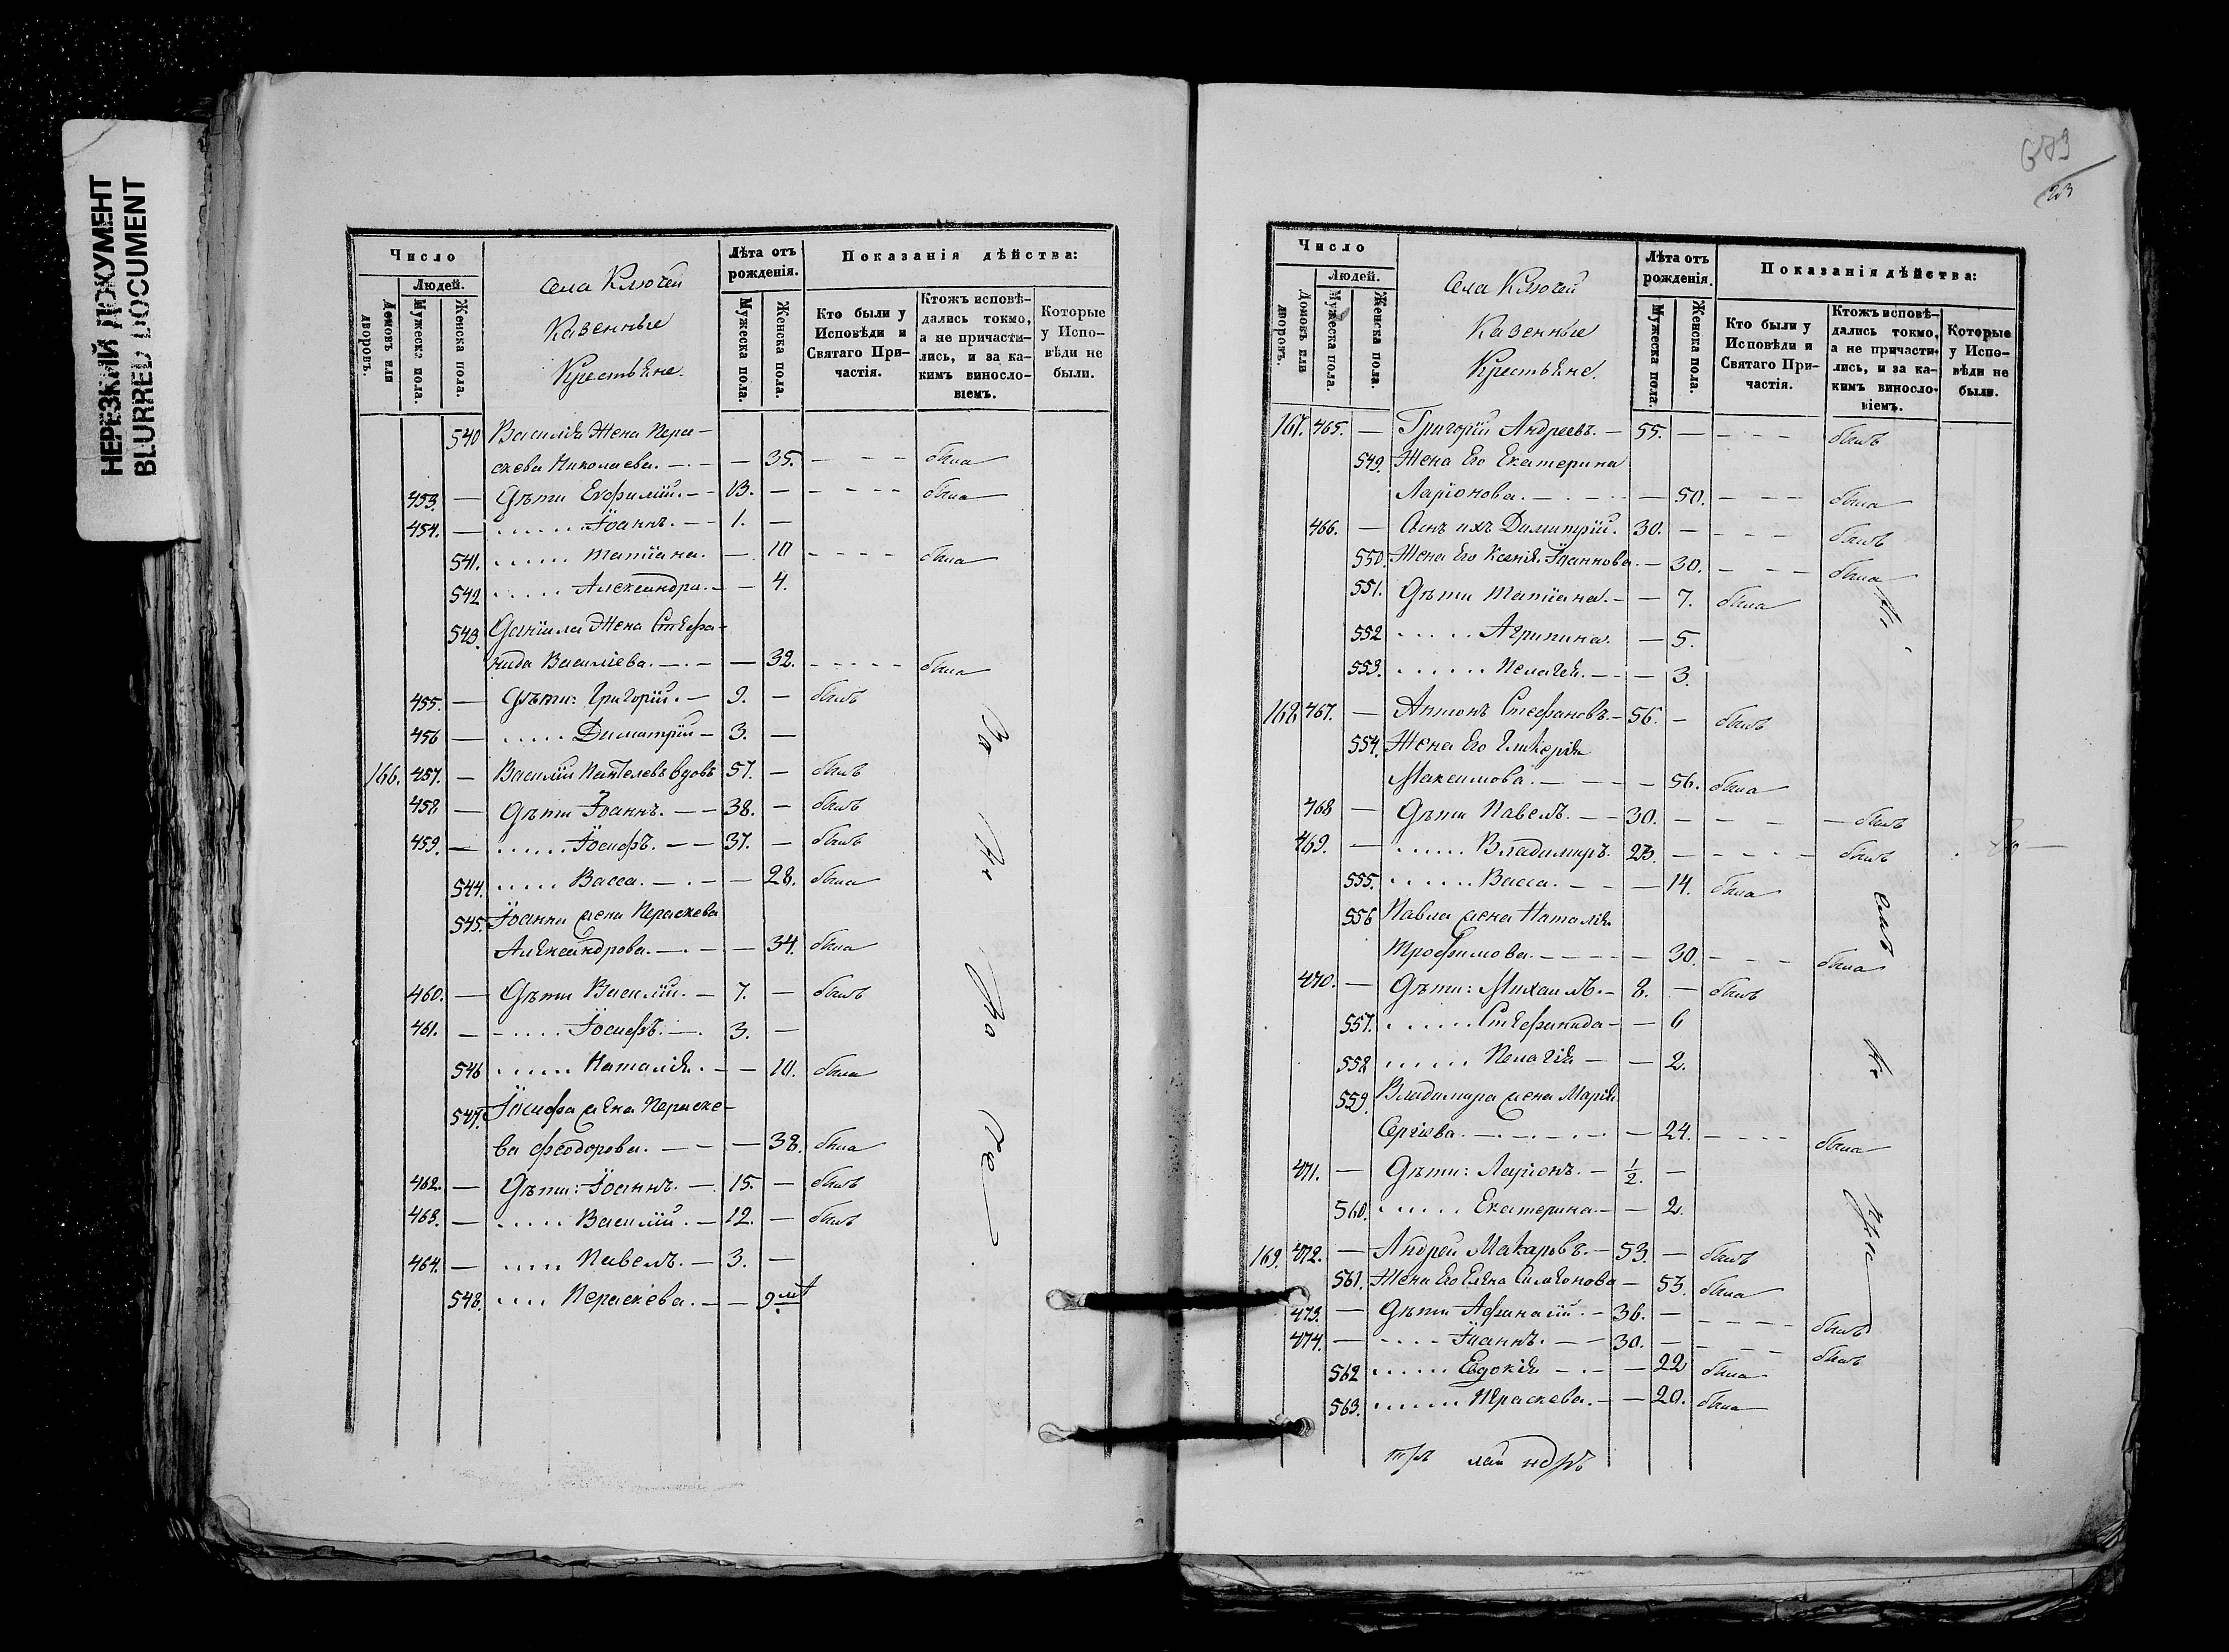 НЕРЕЗКИЙ ДОКУМЕНТ
BLURRED DOCUMENT
Число
Людей.
Домовъ или дворовъ.
Мужеска пола.
Женска пола.
Села Ключей
Казенные
Крестьяне.
Лѣта отъ рожденія.
Мужеска пола.
Женска пола.
Показанія дѣйства:
Кто были у Исповѣди и Святаго Причастія.
Ктожъ исповѣдались токмо, а не причастились, и за какимъ винословіемъ.
Которые у Исповѣди не были.
540 Василія Жена Пера-
скева Николаева. — 35. — была
453. — Дѣти Евфимій. — 13. — была
454. — Іоаннъ. — 1. —
541. Татіана. — 10 была
542 Александра. — 4.
543. Даніила Жена Стефа-
нида Василіева. — 32. была
455. — Дѣти: Григорій. — 9. — былъ
456 — Димитрій — 3. —
166. 457. — Василій Пантелевъ вдовъ 57. — былъ
458 — Дѣти Іоаннъ. — 38. — былъ
459. — Іосифъ. — 37. — былъ
544. Васса. — 28. была
545. Іоанна жена Пераскева
Александрова. — 34. была
460. — Дѣти Василій. — 7. — былъ
461. — Іосифъ. — 3. —
546 Наталія. — 10. была
547. Іосифа жена Параске-
ва Феодорова. — 38. была
462. — Дѣти: Іоаннъ. — 15. — былъ
463. — Василій. — 12. — былъ
464. — Павелъ. — 3. —
548. Пераскева. — 9 м
679
23
Число
Людей.
Домовъ или дворовъ.
Мужеска пола.
Женска пола.
Села Ключей
Казенные
Крестьяне.
Лѣта отъ рожденія.
Мужеска пола.
Женска пола.
Показанія дѣйства:
Кто были у Исповѣди и Святаго Причастія.
Ктожъ исповѣдались токмо, а не причастились, и за какимъ винословіемъ.
Которые у Исповѣди не были.
167. 465. — Григорій Андреевъ. — 55. — былъ
549. Жена Его Екатерина
Ларіонова. — 50. — была
466. — Сынъ ихъ Димитрій. 30. — былъ
550. Жена Его Ксенія Іоаннова. — 30. была
551. Дѣти Татіана. — 7. была
552 Агрипина. — 5.
553. Пелагея. — 3.
168 467. — Антонъ Стефановъ. — 56. — былъ
554. Жена Его Гликерія
Максимова. — 56. была
468 — Дѣти Павелъ. — 30. — былъ
469. — Владимиръ. 23. — былъ
555. Васса. — 14. была
556 Павла жена Наталія
Трофимова. — 30. была
470. — Дѣти: Михаилъ. — 8. — былъ
557. Стефанида — 6
558 Пелагія — 2.
559. Владимира жена Марія
Сергіева. — 24. — была
471. — Дѣти: Ларіонъ. — 1/2. —
560. Екатерина. — 2.
169. 472. — Андрей Макаровъ. — 53. — былъ
561. Жена Его Елена Симеонова — 53. была
473. — Дѣти Афанасій. — 36. — былъ
474. — Іоаннъ. — 30. — былъ
562 Евдокія — 22 была
563. Пераскева. — 20. была